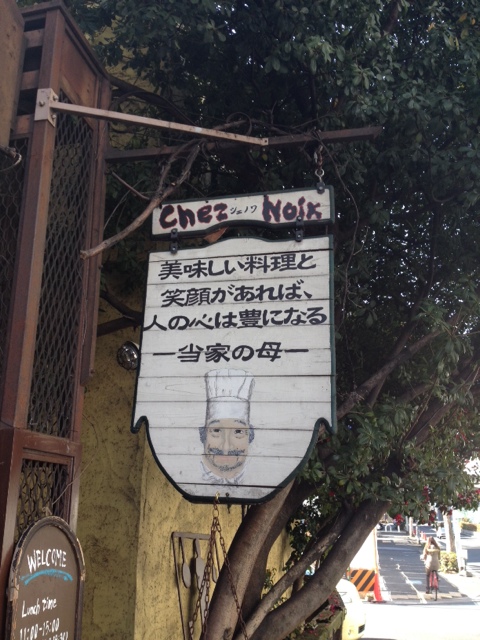 Chez シェノワ Noix
美味しい料理と
笑顔があれば、
人の心は豊になる
ー当家の母ー
WELCOME
Lunch time
11:00-15:00